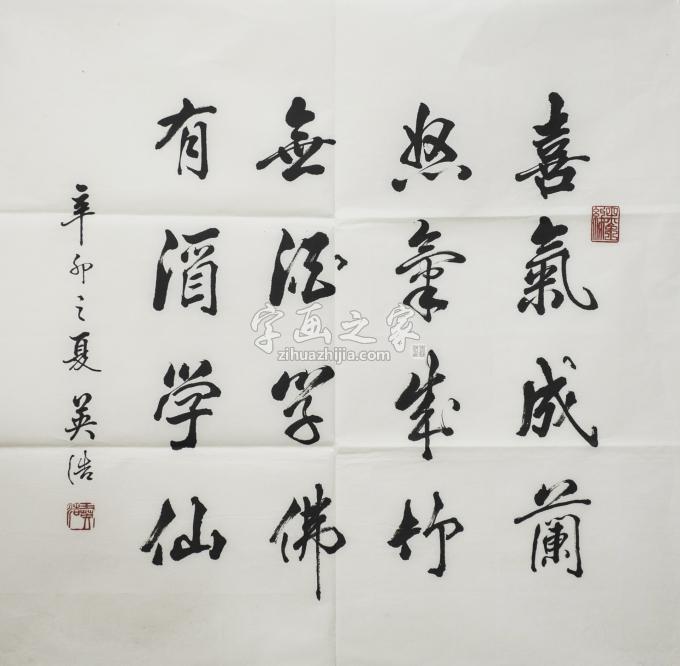 喜氣成蘭
怒氣成竹
無酒学佛
有酒学仙
辛卯之夏 英浩
字画之家
zihuazhijia.com